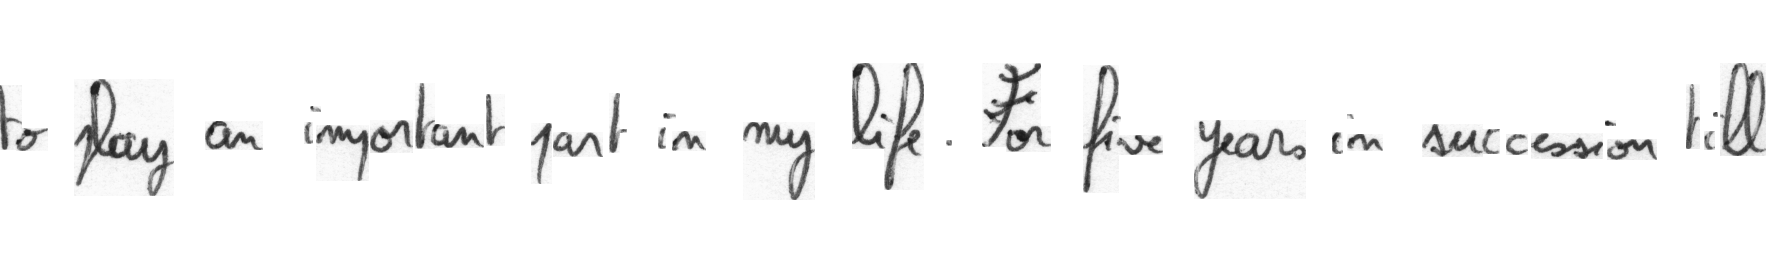 to play an important part in my life. For five years in succession till